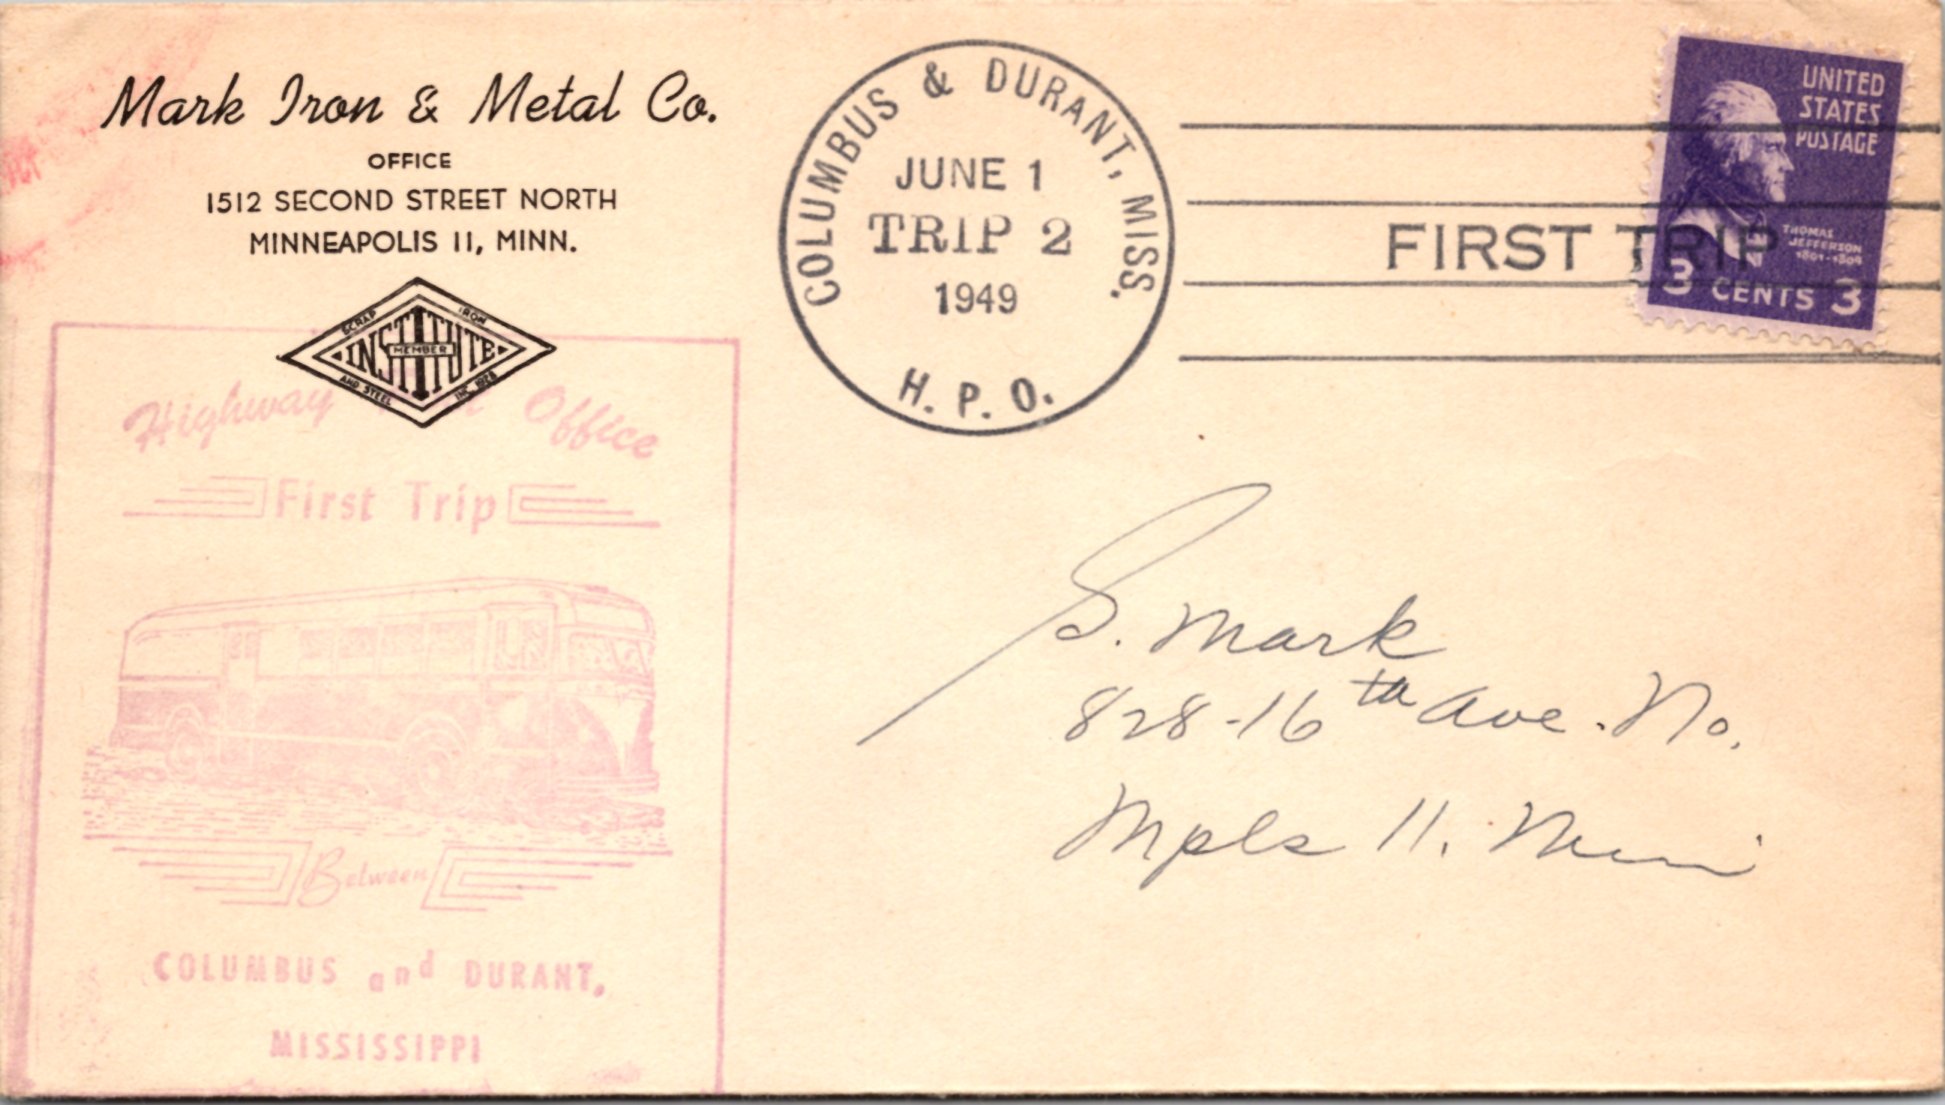 Mark Iron & Metal Co.
OFFICE
1512 SECOND STREET NORTH
MINNEAPOLIS 11, MINN.
SCRAP IRON
INSTITUTE
MEMBER
AND STEEL INC. 1928
COLUMBUS & DURANT, MISS.
JUNE 1
TRIP 2
1949
H. P. O.
FIRST TRIP
UNITED
STATES
POSTAGE
THOMAS
JEFFERSON
1801-1809
3 CENTS 3
Highway Office
First Trip
Between
COLUMBUS and DURANT,
MISSISSIPPI
S. Mark
828-16th Ave. No.
Mpls 11. Minn